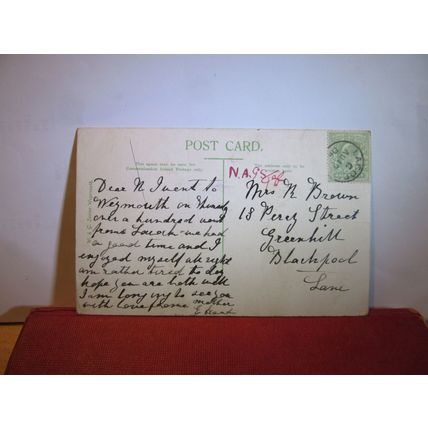 POST CARD.
This space may be used for
Communication Inland Postage only.
The address only to
N.A.
Dear N I went to
Weymouth on Thursday
over a hundred went
from Church we had
a good time and I
enjoyed myself all right
am rather tired to day
hope you are both well
I am longing to see you
with love from
Mother
Mrs R Brown
18 Percy Street
Greenhill
Blackpool
Lane